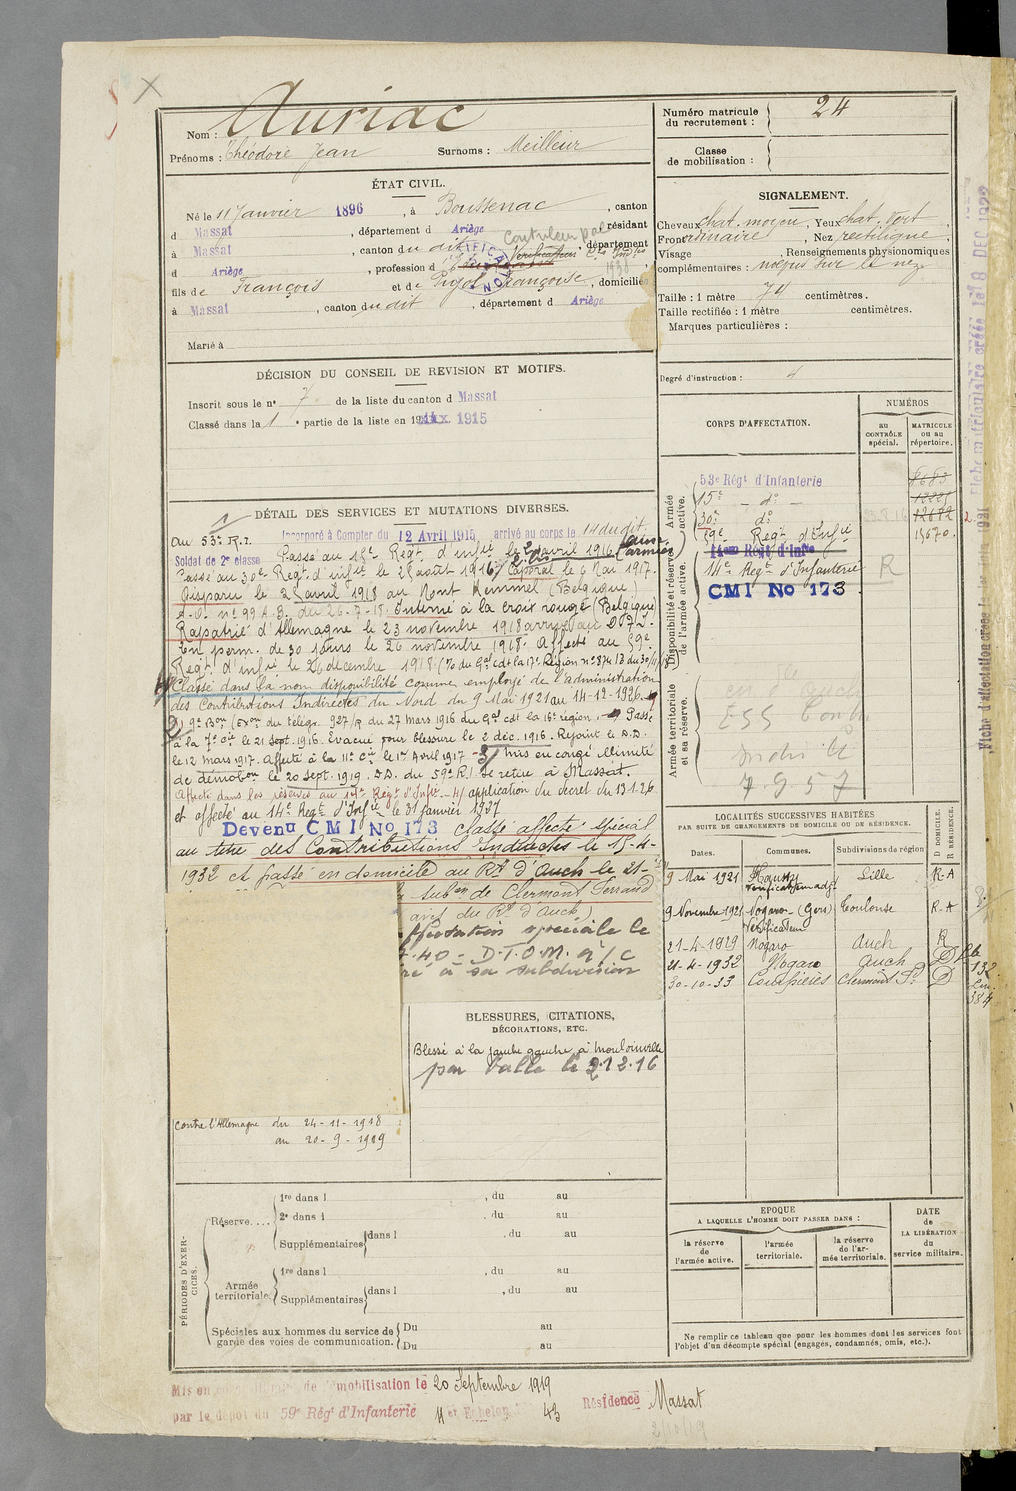 Auriac
Nom :
Prénoms : Théodore Jean Surnoms : Meilleur
Numéro matricule du recrutement : 24
Classe de mobilisation :
ÉTAT CIVIL.
Né le 11 Janvier 1896, à Boussenac, canton
d Massat, département d Ariège, résidant
à Massat, canton du dit, département
d Ariège, profession d
fils de François et de Pujol Françoise, domiciliés
à Massat, canton du dit, département d Ariège
Marié à
SIGNALEMENT.
Cheveux chat. moyen, Yeux chat. vert
Front Nez rectiligne
Visage Renseignements physionomiques
complémentaires : nævus sur le nez
Taille : 1 mètre 74 centimètres.
Taille rectifiée : 1 mètre centimètres.
Marques particulières :
Degré d'instruction :
DÉCISION DU CONSEIL DE REVISION ET MOTIFS.
Inscrit sous le n° 7 de la liste du canton d Massat
Classé dans la 1 e partie de la liste en 1915
CORPS D'AFFECTATION.
NUMÉROS
au CONTRÔLE spécial.
MATRICULE ou au répertoire.
Armée active.
53e Régt d'Infanterie 8683
15e - do -
30e do 12682
59e Regt d'Infie 15670
Disponibilité et réserve de l'armée active.
14eme Regt d'Infie
14e Regt d'Infanterie R
CMI No 173
Armée territoriale et sa réserve.
7.9.57
DÉTAIL DES SERVICES ET MUTATIONS DIVERSES.
au 53e R.I. Incorporé à Compter du 12 Avril 1915, arrivé au corps le 14 du dit.
Soldat de 2e classe Passé au 15e Regt d'infie le avril 1916
Passé au 30e Regt d'infie le 28 août 1916. Caporal le 6 Mai 1917.
Disparu le 25 avril 1918 au Mont Kemmel (Belgique)
A.O. n° 99 A.B. du 26-7-18. Interné à la croix rouge (Belgique)
Rapatrié d'Allemagne le 23 novembre 1918 arrivé au
en perm. de 30 jours le 26 novembre 1918. Affecté au 59e
Regt d'infie le 26 décembre 1918.
Classé dans la non disponibilité comme employé de l'administration
des Contributions Indirectes du Nord du 9 Mai 1921 au 14-12-1926.
9e Bon (Exon du télégr. 927/R du 27 mars 1916 du Gal cdt la 16e région. Passé
à la 7e Cie le 21 sept. 1916. Evacué pour blessure le 2 déc. 1916. Rejoint le D.D.
le 12 mars 1917. Affecté à la 11e Cie le 1er Avril 1917 3/ mis en congé illimité
de démobon le 20 sept. 1919. D.D. du 59e R.I. Se retire à Massat.
Affecté dans les réserves au 14e Regt d'Infie 4/ application du décret du 13.1.26.
et affecté au 14e Regt d'Infie le 31 janvier 1927
Devenu CMI No 173 classé affecté spécial
au titre des Contributions Indirectes le 15-4-
1932 et passé en domicile au Rt d'Auch le 21-
Subon de Clermont Ferrand
avis du Rt d'Auch)
ffectation spéciale le
.40 - D.T.O.M. a/c
ré à sa subdivision
LOCALITÉS SUCCESSIVES HABITÉES
PAR SUITE DE CHANGEMENTS DE DOMICILE OU DE RÉSIDENCE.
Dates. Communes. Subdivisions de région D DOMICILE. R RÉSIDENCE.
9 Mai 1921 Lille R-A
9 Novembre 1921 Nogaro (Gers) Toulouse R-A
Vérificateur
21-4-1929 Nogaro Auch R
21-4-1932 Nogaro Auch D
30-10-33 Courpières Clermont Fd D
BLESSURES, CITATIONS,
DÉCORATIONS, ETC.
Blessé à la jambe gauche à Mouloinville
par balle le 2.12.16
contre l'Allemagne du 24-11-1918
au 20-9-1919
PÉRIODES D'EXERCICES.
Réserve....
1re dans l , du au
2e dans l , du au
Supplémentaires dans l , du au
Armée territoriale.
1re dans l , du au
Supplémentaires dans l , du au
Spéciales aux hommes du service de garde des voies de communication.
Du au
Du au
EPOQUE
A LAQUELLE L'HOMME DOIT PASSER DANS :
la réserve de l'armée active.
l'armée territoriale.
la réserve de l'armée territoriale.
DATE de LA LIBÉRATION du service militaire.
Ne remplir ce tableau que pour les hommes dont les services font
l'objet d'un décompte spécial (engagés, condamnés, omis, etc.).
Mis en de démobilisation le 20 Septembre 1919
par le dépôt du 59e Régt d'Infanterie 11 er Echelon 43 Résidence Massat